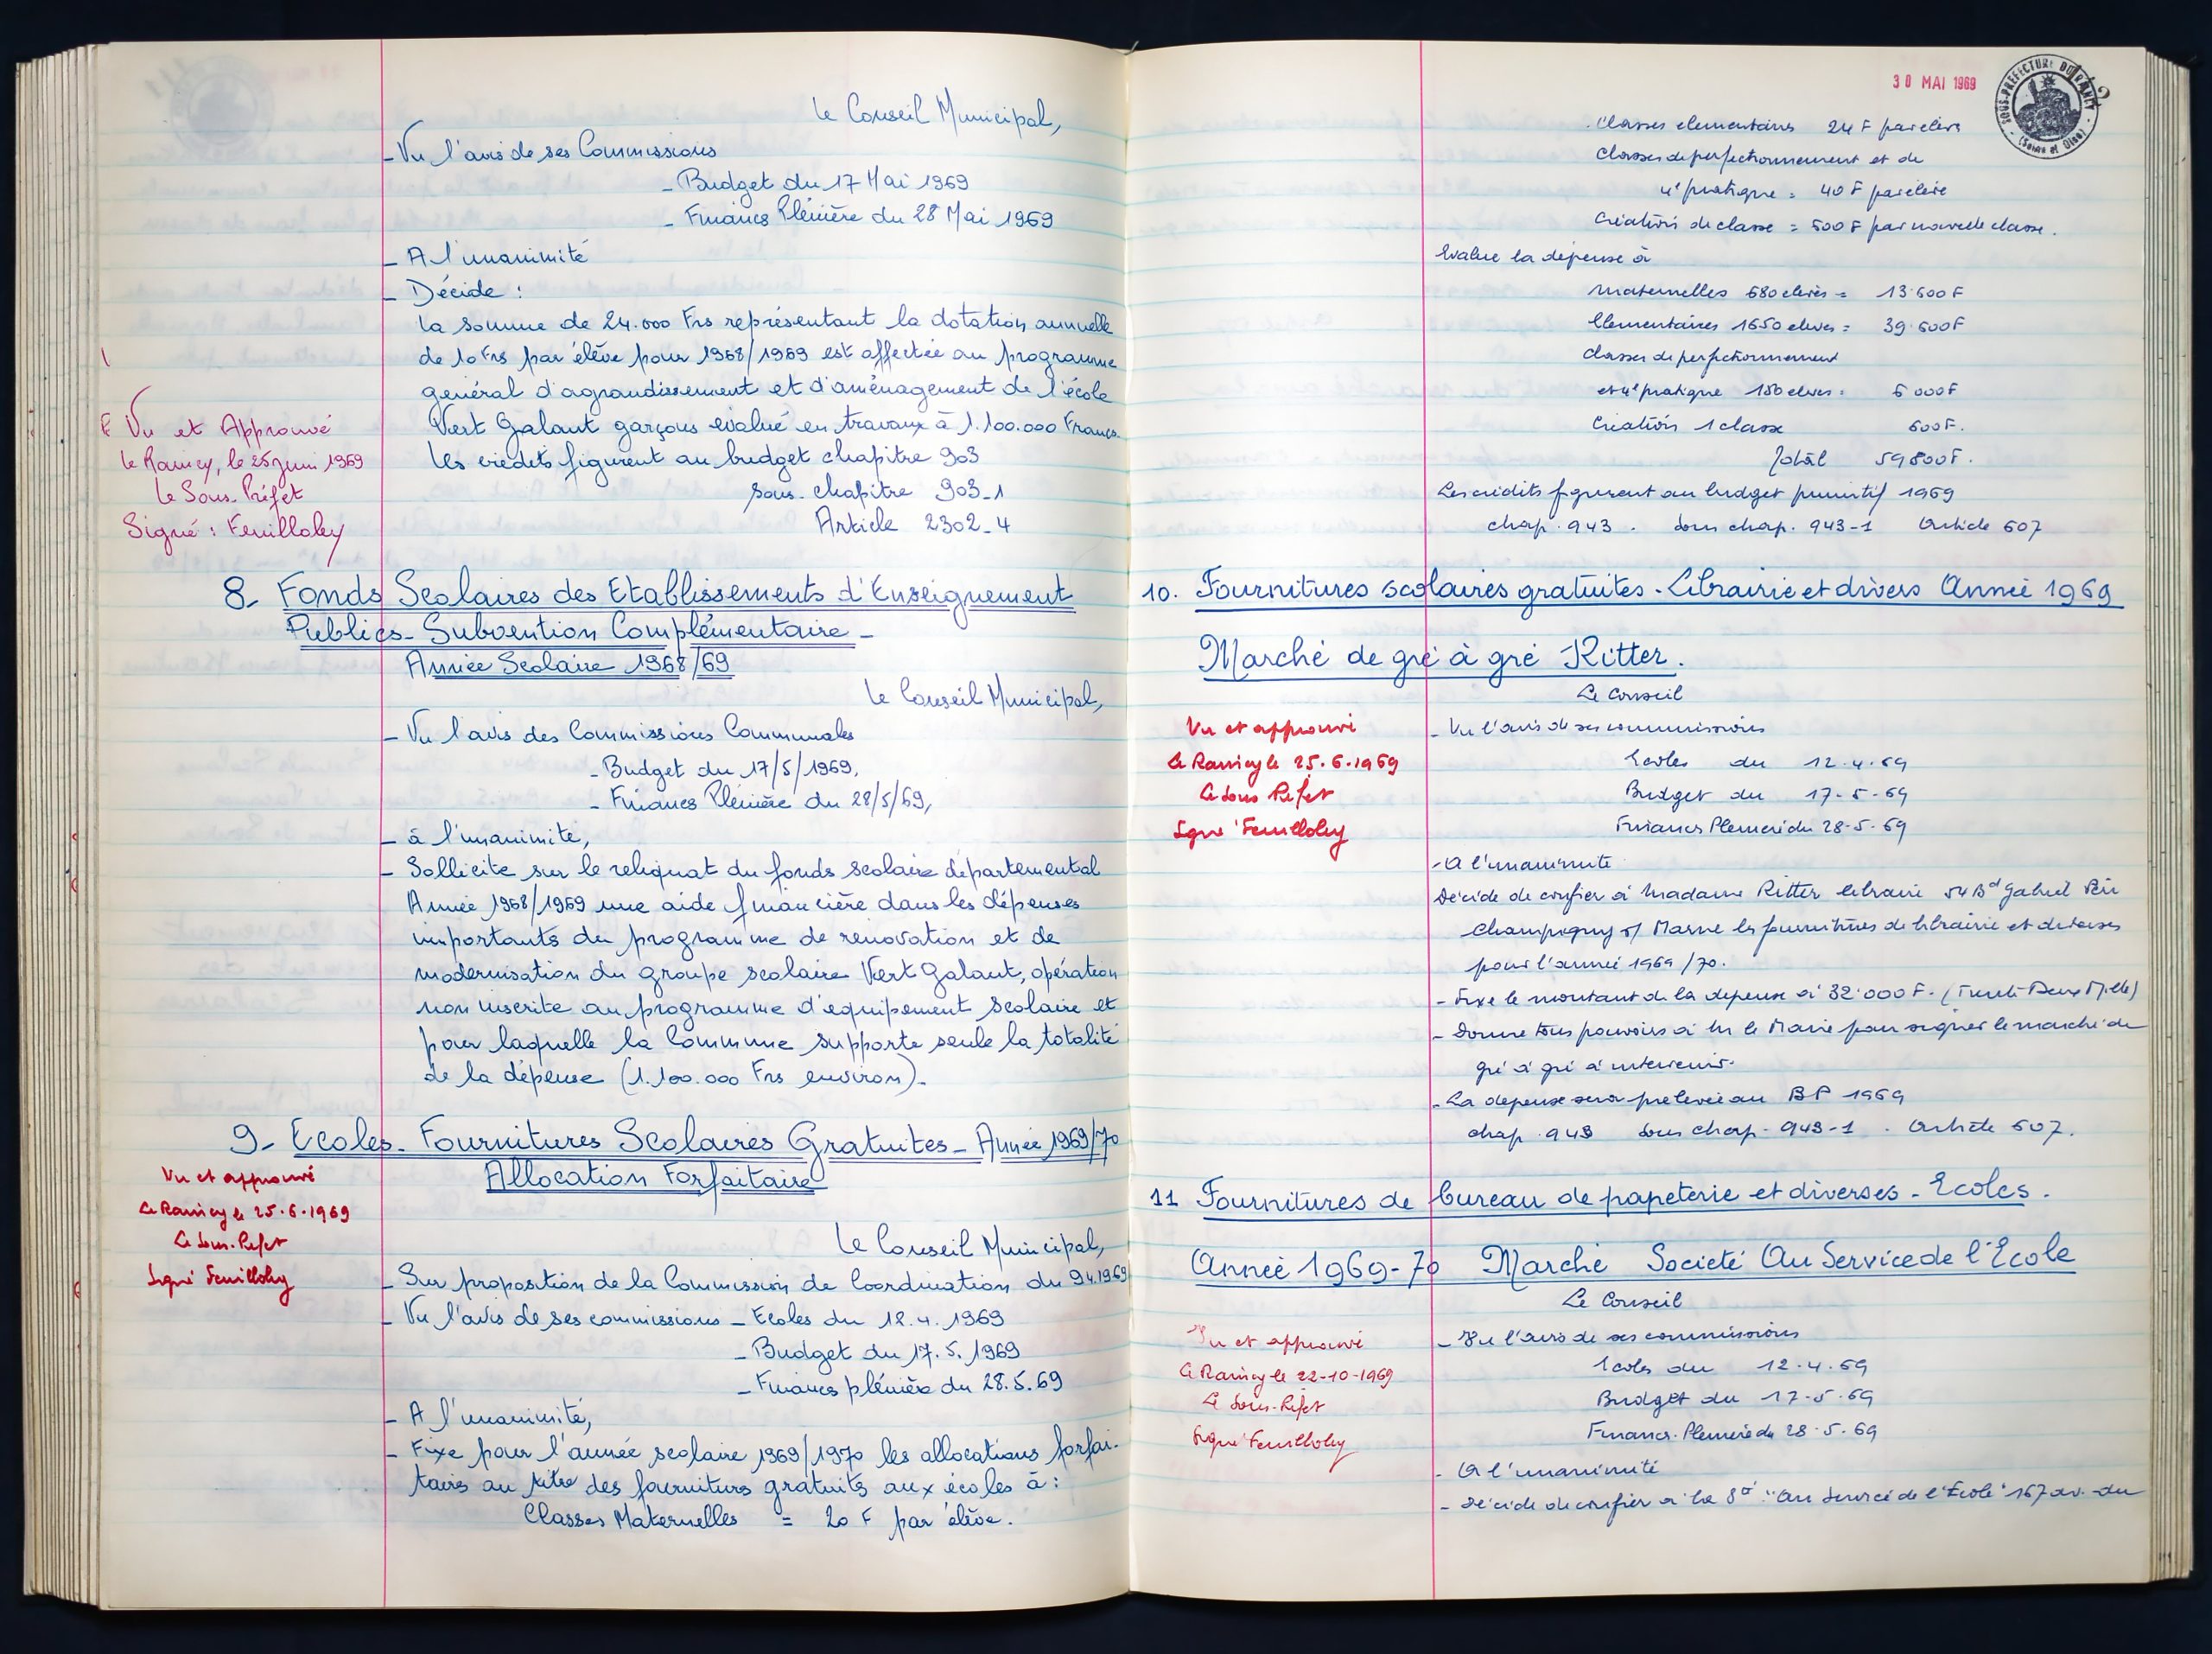 le Conseil Municipal,
- Vu l'avis de ses Commissions
- Budget du 17 Mai 1969
- Finances Plénière du 28 Mai 1969
- A l'unanimité
- Décide :
la somme de 24.000 Frs représentant la dotation annuelle
de 10 Frs par élève pour 1968/1969 est affectée au programme
général d'agrandissement et d'aménagement de l'école
Vert Galant garçons évalué en travaux à 1.100.000 Francs.
les crédits figurent au budget chapitre 903
sous-chapitre 903-1
Article 2302-4
Vu et Approuvé
le Raincy, le 25 Juin 1969
Le Sous-Préfet
Signé : Feuilloley
8- Fonds Scolaires des Etablissements d'Enseignement
Publics - Subvention Complémentaire -
Année Scolaire 1968/69
le Conseil Municipal,
- Vu l'avis des Commissions Communales
- Budget du 17/5/1969,
- Finances Plénière du 28/5/69,
- à l'unanimité,
- Sollicite sur le reliquat du fonds scolaire départemental
Année 1968/1969 une aide financière dans les dépenses
importants du programme de renovation et de
modernisation du groupe scolaire Vert Galant, opération
non inscrite au programme d'equipement scolaire et
pour laquelle la Commune supporte seule la totalité
de la dépense (1.100.000 Frs environ).
9- Ecoles - Fournitures Scolaires Gratuites - Année 1969/70
Allocation Forfaitaire
Vu et approuvé
Le Raincy le 25.6.1969
Le Sous-Préfet
Signé Feuilloley
Le Conseil Municipal,
- Sur proposition de la Commission de Coordination du 9.4.1969
- Vu l'avis de ses commissions - Ecoles du 12.4.1969
- Budget du 17.5.1969
- Finances plénière du 28.5.69
- A l'unanimité,
- Fixe pour l'année scolaire 1969/1970 les allocations forfai-
taires au titre des fournitures gratuites aux écoles à :
Classes Maternelles = 20 F par élève.
30 MAI 1969
SOUS-PREFECTURE DU RAINCY
(Seine et Oise)
Classes elementaires 24 F par eleve
Classes de perfectionnement et de
4e pratique = 40 F par élève
Création de classe = 600 F par nouvelle classe.
Evalue la dépense à
Maternelles 680 elèves = 13.600 F
Elementaires 1650 eleves = 39.600 F
Classes de perfectionnement
et 4e pratique 150 eleves = 6 000 F
Création 1 classe 600 F.
Total 59 800 F.
Les crédits figurent au budget primitif 1969
chap. 943. Sous chap. 943-1 Article 607
10. Fournitures scolaires gratuites - Librairie et divers Année 1969
Marché de gré à gré Ritter.
Le Conseil
Vu et approuvé
Le Raincy le 25.6.1969
Le Sous Préfet
Signé Feuilloley
- Vu l'avis de ses commissions
Ecoles du 12.4.69
Budget du 17-5-69
Finances Pleniere du 28-5-69
- A l'unanimité
Décide de confier à Madame Ritter libraire 54 Bd Gabriel Péri
Champigny s/ Marne les fournitures de librairie et diverses
pour l'année 1969/70.
- Fixe le montant de la depense à 32.000 F. (Trente-Deux Mille)
- Donne tous pouvoirs à Mr le Maire pour signer le marché de
gré à gré à intervenir.
- La depense sera prelevée au BP 1969
chap. 943 Sous chap. 943-1. Article 607.
11 Fournitures de bureau de papeterie et diverses - Ecoles.
Année 1969-70 Marché Societé Au Service de l'Ecole
Le Conseil
Vu et approuvé
Le Raincy le 22-10-1969
Le Sous-Préfet
Signé Feuilloley
- Vu l'avis de ses commissions
Ecoles du 12.4.69
Budget du 17-5-69
Finances Pleniere du 28.5.69
- A l'unanimité
- Décide de confier à la Sté "Au Service de l'Ecole" 167 av. du